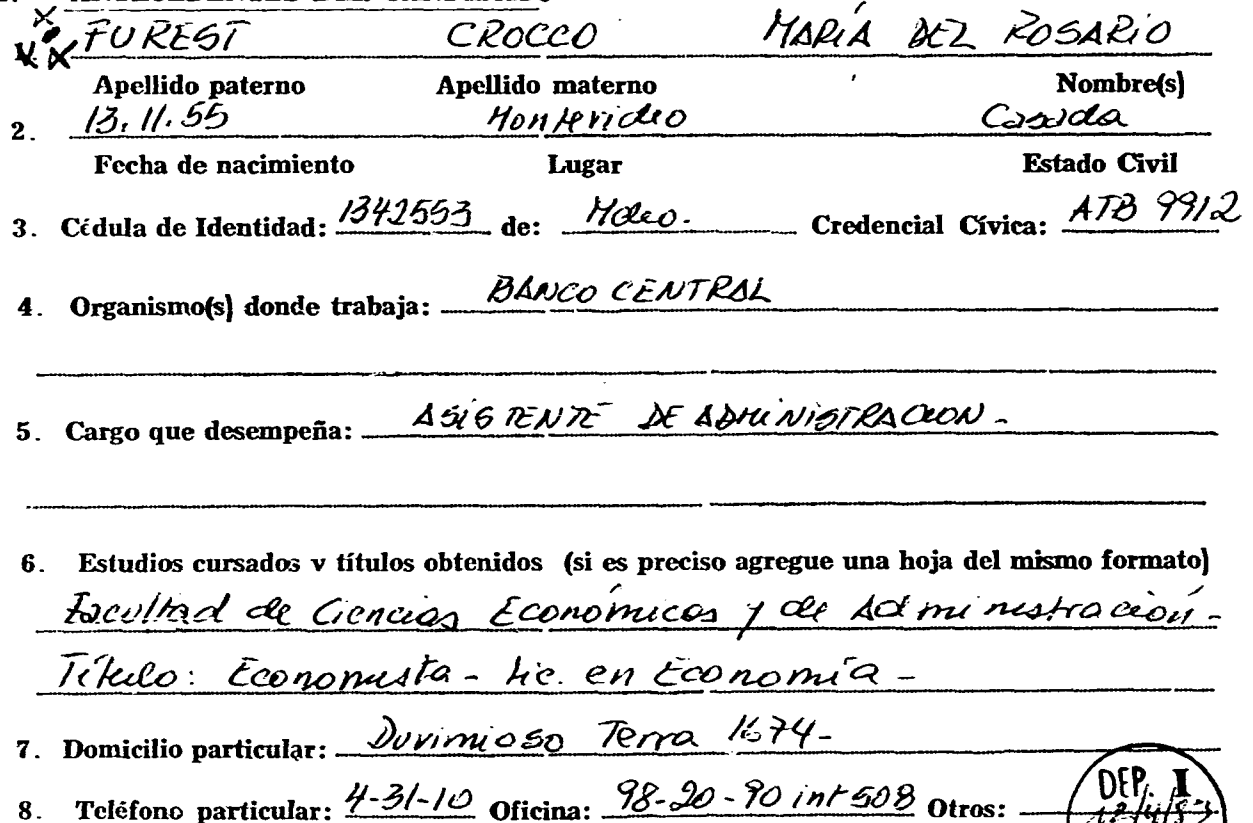 FUREST CROCCO MARÍA DEL ROSARIO
Apellido paterno Apellido materno Nombre(s)
2. 13.11.55 Montevideo Casada
Fecha de nacimiento Lugar Estado Civil
3. Cédula de Identidad: 1342553 de: Mdeo. Credencial Cívica: ATB 9912
4. Organismo(s) donde trabaja: BANCO CENTRAL
5. Cargo que desempeña: ASISTENTE DE ADMINISTRACION -
6. Estudios cursados y títulos obtenidos (si es preciso agregue una hoja del mismo formato)
Facultad de Ciencias Económicas y de Administración -
Título: Economista - Lic. en Economía -
7. Domicilio particular: Duvimioso Terra 1674 -
8. Teléfono particular: 4-31-10 Oficina: 98-20-90 int 508 Otros:
DEP. I